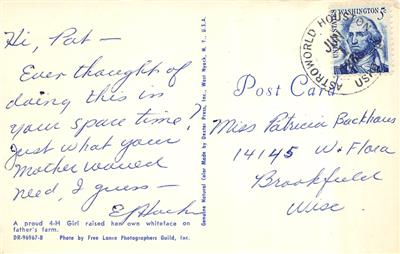 Hi, Pat—
Ever thought of
doing this in
your space time?
Just what your
Mother would
need, I guess—
A proud 4-H Girl raised her own whiteface on
father's farm.
DR-96967-B Photo by Free Lance Photographers Guild, Inc.
Genuine Natural Color Made by Dexter Press, Inc., West Nyack, N. Y. U.S.A.
Post Card
WASHINGTON 5c
ASTROWORLD HOUSTON
USA
Miss Patricia Backhaus
14145 W. Flora
Brookfield
Wisc.